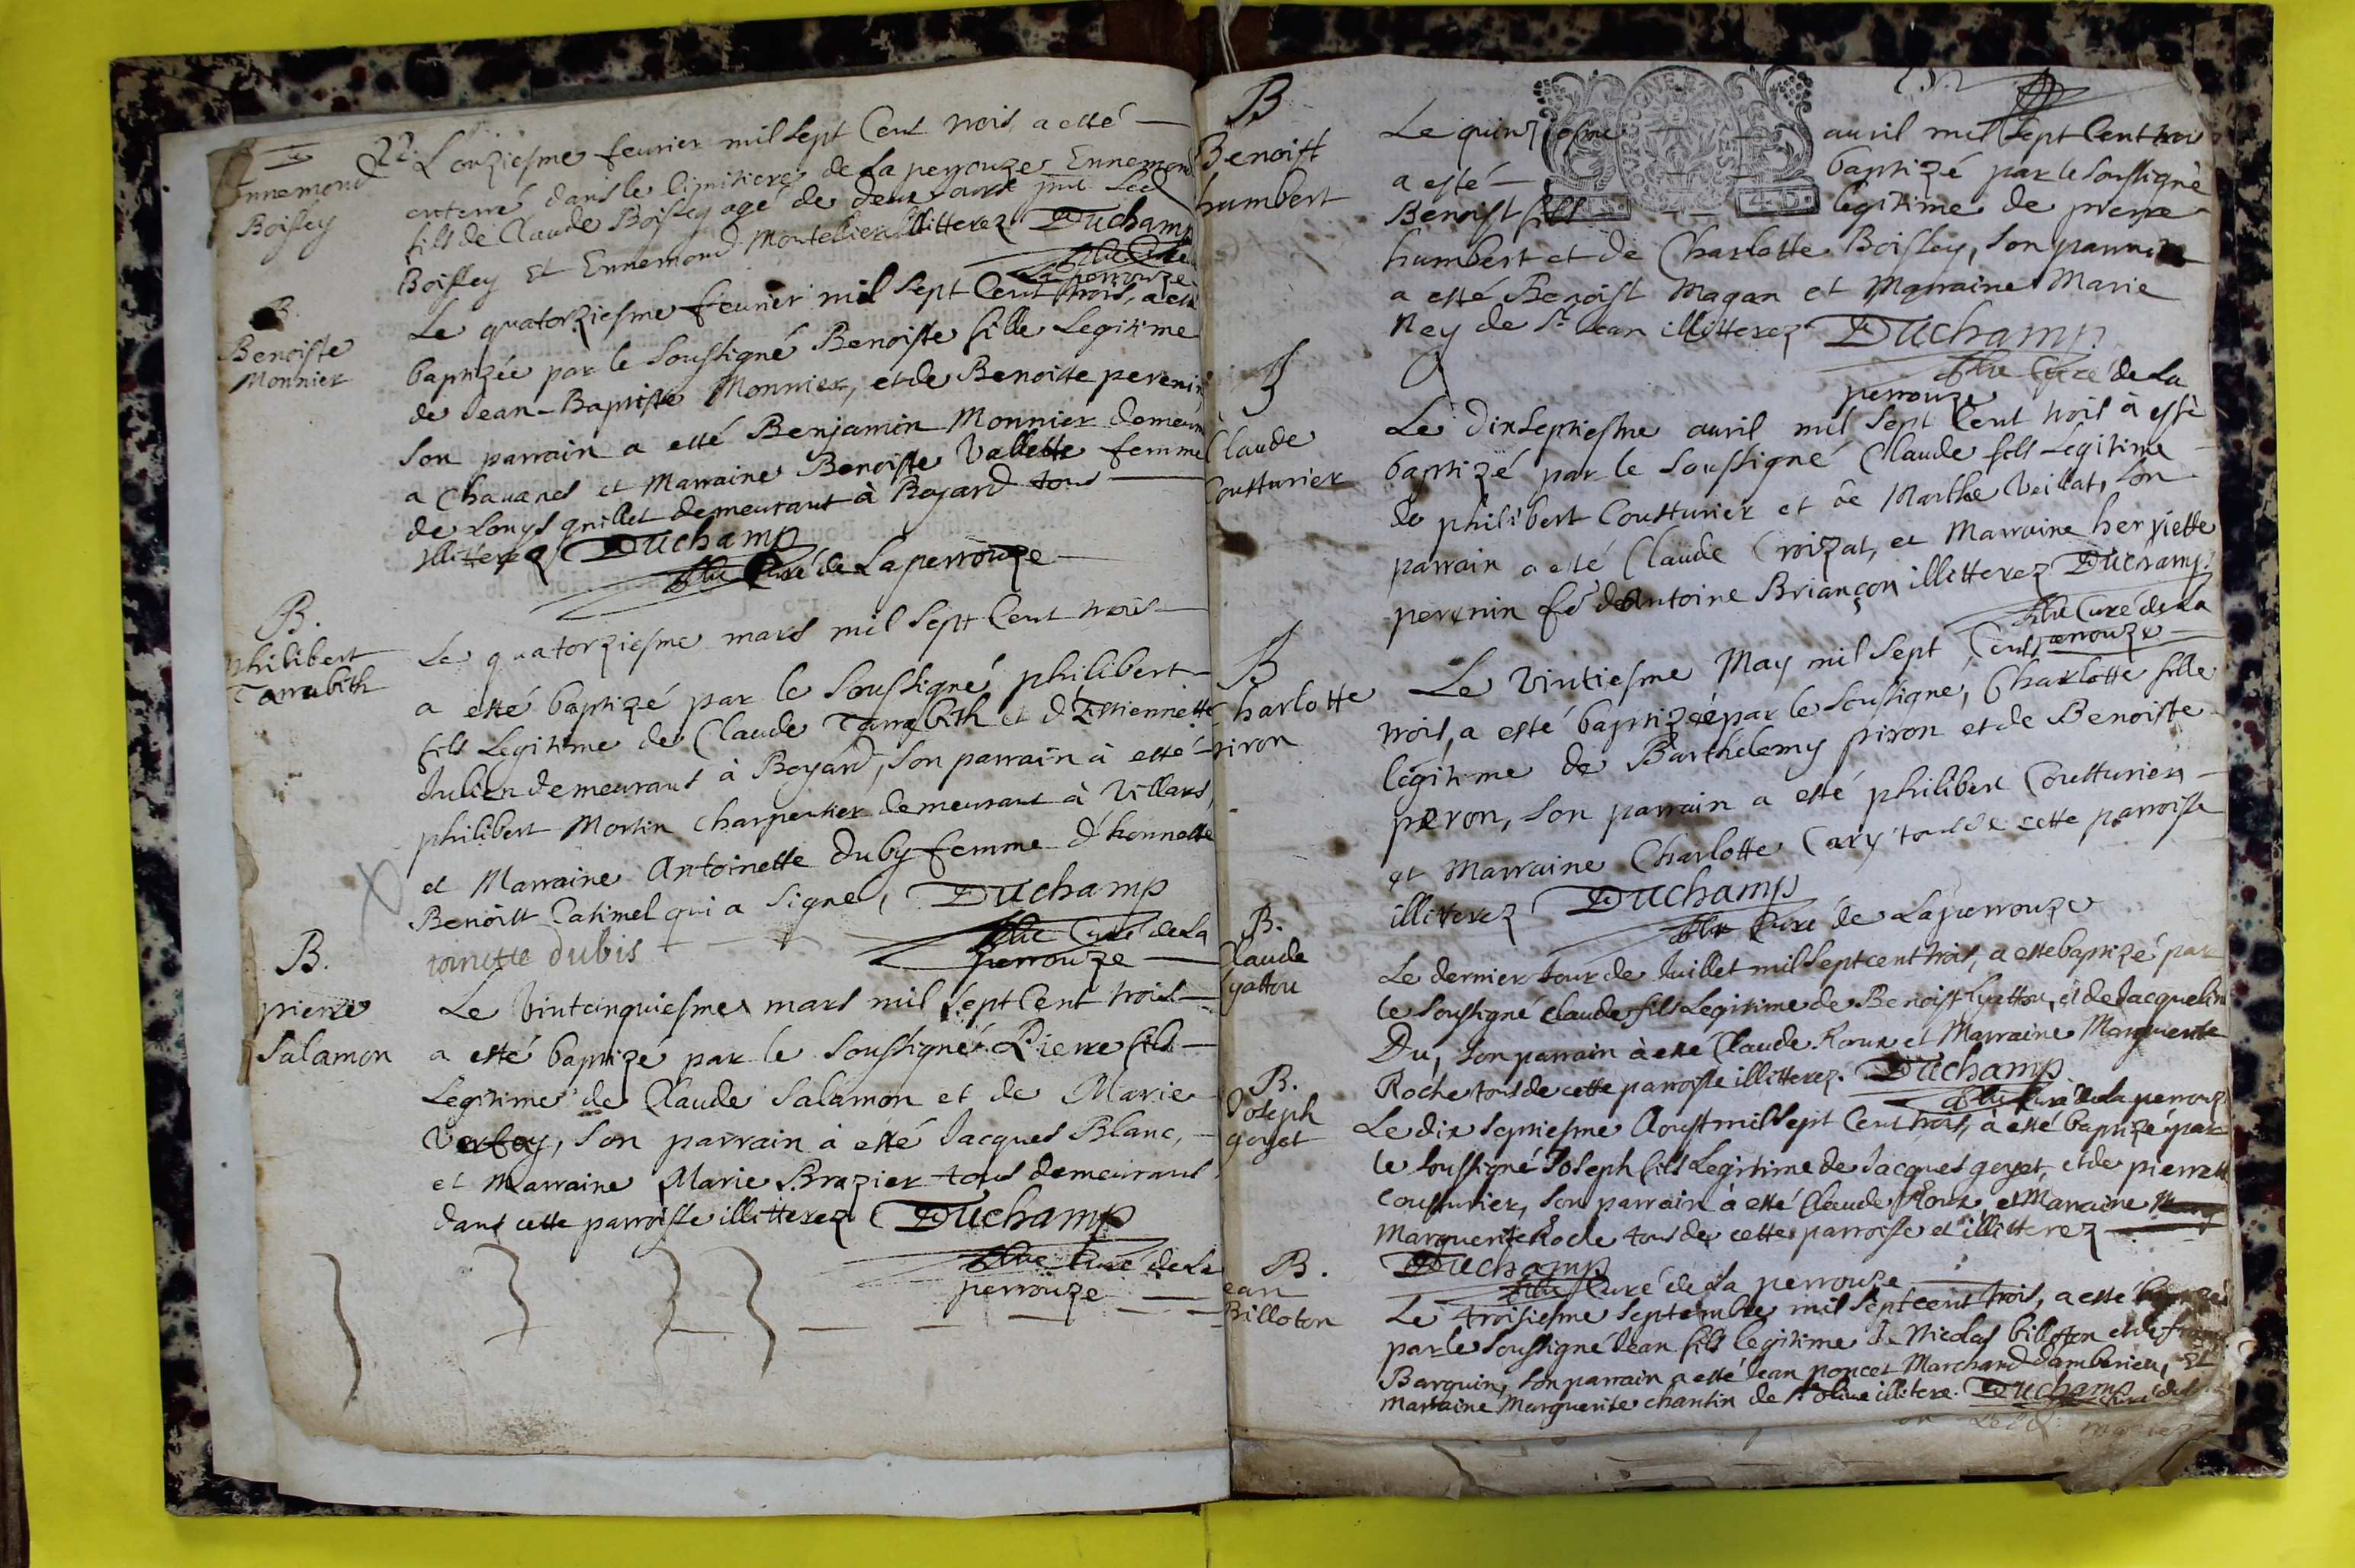 Ennemond
Boissey
L'onziesme feurier mil sept Cent trois a esté
enterré dans le Cimitiere de La perrouze Ennemond
fils de Claude Boissey agé de deux ans
Boissey Et Ennemond Montellier illitterez Duchamp
Laperrouze
B.
Benoiste
Monnier
Le quatorziesme feurier mil sept Cent trois, a esté
baptizée par le Soussigné Benoiste fille Legitime
de Jean-Baptiste Monnier, et de Benoiste perenin
Son parrain a esté Benjamin Monnier demeurt
a Chauanes et Marraine Benoiste Vallette femme
de Louys grillet demeurant à Boyard tous
illitterez Duchamp
Curé de Laperrouze
B.
philibert
Tarrabith
Le quatorziesme mars mil sept Cent trois
a esté baptizé par le Soussigné philibert
fils Legitime de Claude Tarrabith et d'Estiennette
Julien demeurant à Boyard, Son parrain à esté
philibert Mortin Charpentier demeurant à Villars,
et Marraine Antoinette Duby femme d'honneste
Benoist Catimel qui a signé, Duchamp
toinette dubis
Curé de La
perrouze
B.
pierre
Salamon
Le Vintcinquiesme mars mil sept Cent trois
a esté baptizé par le Soussigné Pierre fils
Legitime de Claude Salamon et de Marie
Verfay, Son parrain à esté Jacques Blanc,
et Marraine Marie Brazier tous demeurant
dans cette parroisse illitterez Duchamp
Curé de La
perrouze
B
Benoist
humbert
Le quinziesme auril mil sept Cent trois
a esté baptizé par le Soussigné
Benoist fils legitime de pierre
humbert et de Charlotte Boissey, Son parrain
a esté Benoist Magan et Marraine Marie
Ney de St Jean illitterez Duchamp
Curé de La
perrouze
B
Claude
Coutturier
Le Dixseptiesme auril mil sept Cent trois à esté
baptizé par le Soussigné Claude fils Legitime
de philibert Coutturier et de Marthe Veillat, Son
parrain a esté Claude Croizat, et Marraine henriette
perenin fe d'Antoine Briançon illitterez Duchamp
Curé de La
perrouze
B
Charlotte
piron
Le Vintiesme May mil Sept Cent
trois, a esté baptizée par le Soussigné, Charlotte fille
légitime de Barthelemy piron et de Benoiste
peron, Son parrain a esté philibert Coutturier
et Marraine Charlotte Cary tous de cette parroisse
illiterez Duchamp
Curé de Laperrouze
B.
Claude
lyattou
Le dernier Jour de Juillet mil Sept cent trois, a esté baptizé par
le Soussigné Claude fils Legitime de Benoist lyattou, et de Jacqueline
Du, Son parrain à esté Claude Roux et Marraine Marguerite
Roche tous de cette parroisse illitterez. Duchamp
Curé de La perrouze
B.
Joseph
goyet
Le dix septiesme Aoust mil Sept Cent trois, à esté baptizé par
le Soussigné Joseph fils Legitime de Jacques goyet, et de pierrette
Coutturier, Son parrain à esté Claude Roux, et Marraine
Marguerite Roche tous de cette parroisse et illitterez
Duchamp
Curé de La perrouze
B.
Jean
Billoton
Le troisiesme Septembre mil Sept cent trois, a esté baptizé
par le Soussigné Jean fils legitime de Nicolas billotton et de
Barquin, Son parrain a esté Jean poncet Marchand d'amberieu, Et
Marraine Marguerite chantin de St oliue illitere. Duchamp Curé de La